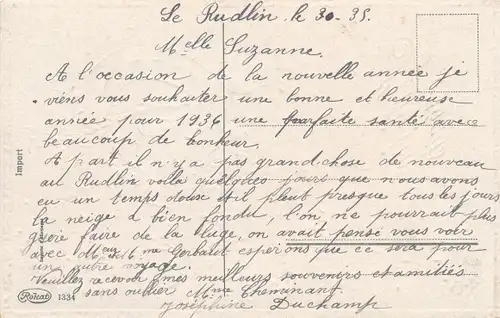 Le Rudlin le 30-35.
Melle Suzanne.
A l'occasion de la nouvelle année je
viens vous souhaiter une bonne et heureuse
année pour 1936 une parfaite santé avec
beaucoup de bonheur.
A part il n'y a pas grand chose de nouveau
au Rudlin voilà quelques jours que nous avons
eu un temps doux et il pleut presque tous les jours
la neige a bien fondu, l'on ne pourrait plus
guère faire de la luge, on avait pensé vous voir
avec Mme Gerbaut esperons que ce sera pour
un autre voyage.
Veuillez recevoir mes meilleurs souvenirs et amitiés
sans oublier Mme Cheminant
Joséphine Duchamp
Import
Rokat 1334